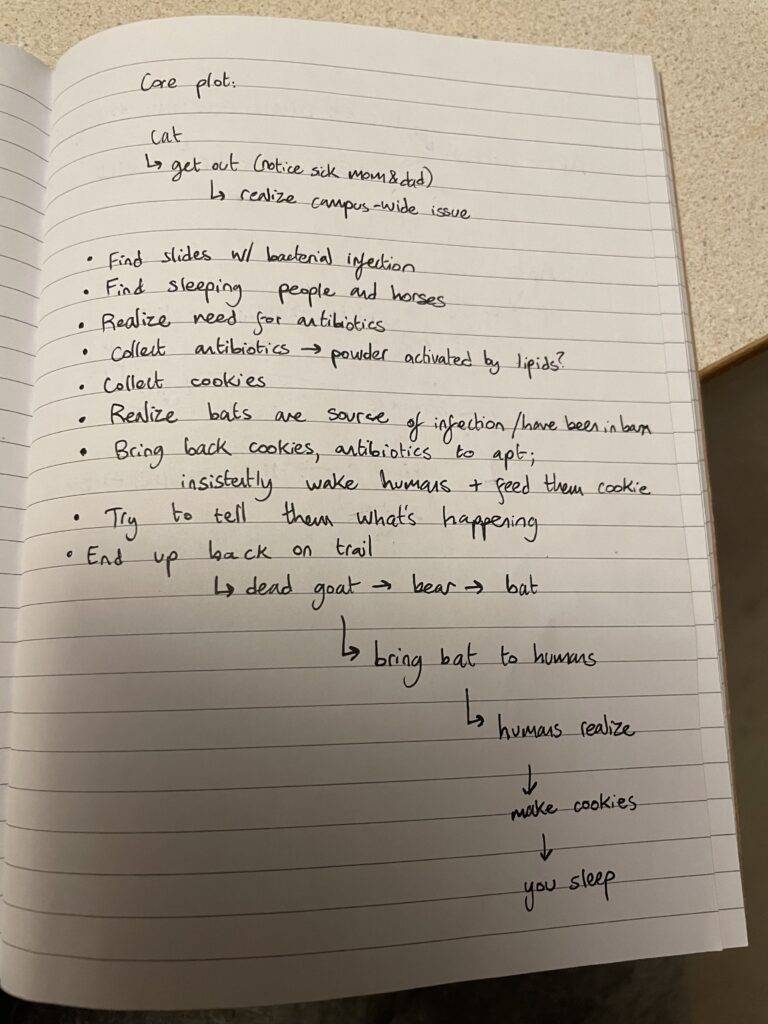 Core plot:
Cat
↳ get out (notice sick mom & dad)
↳ realize campus-wide issue
• Find slides w/ bacterial infection
• Find sleeping people and horses
• Realize need for antibiotics
• Collect antibiotics → powder activated by lipids?
• Collect cookies
• Realize bats are source of infection/have been in barn
• Bring back cookies, antibiotics to apt;
insistently wake humans + feed them cookie
• Try to tell them what's happening
• End up back on trail
↳ dead goat → bear → bat
↳ bring bat to humans
↳ humans realize
↓
make cookies
↓
you sleep